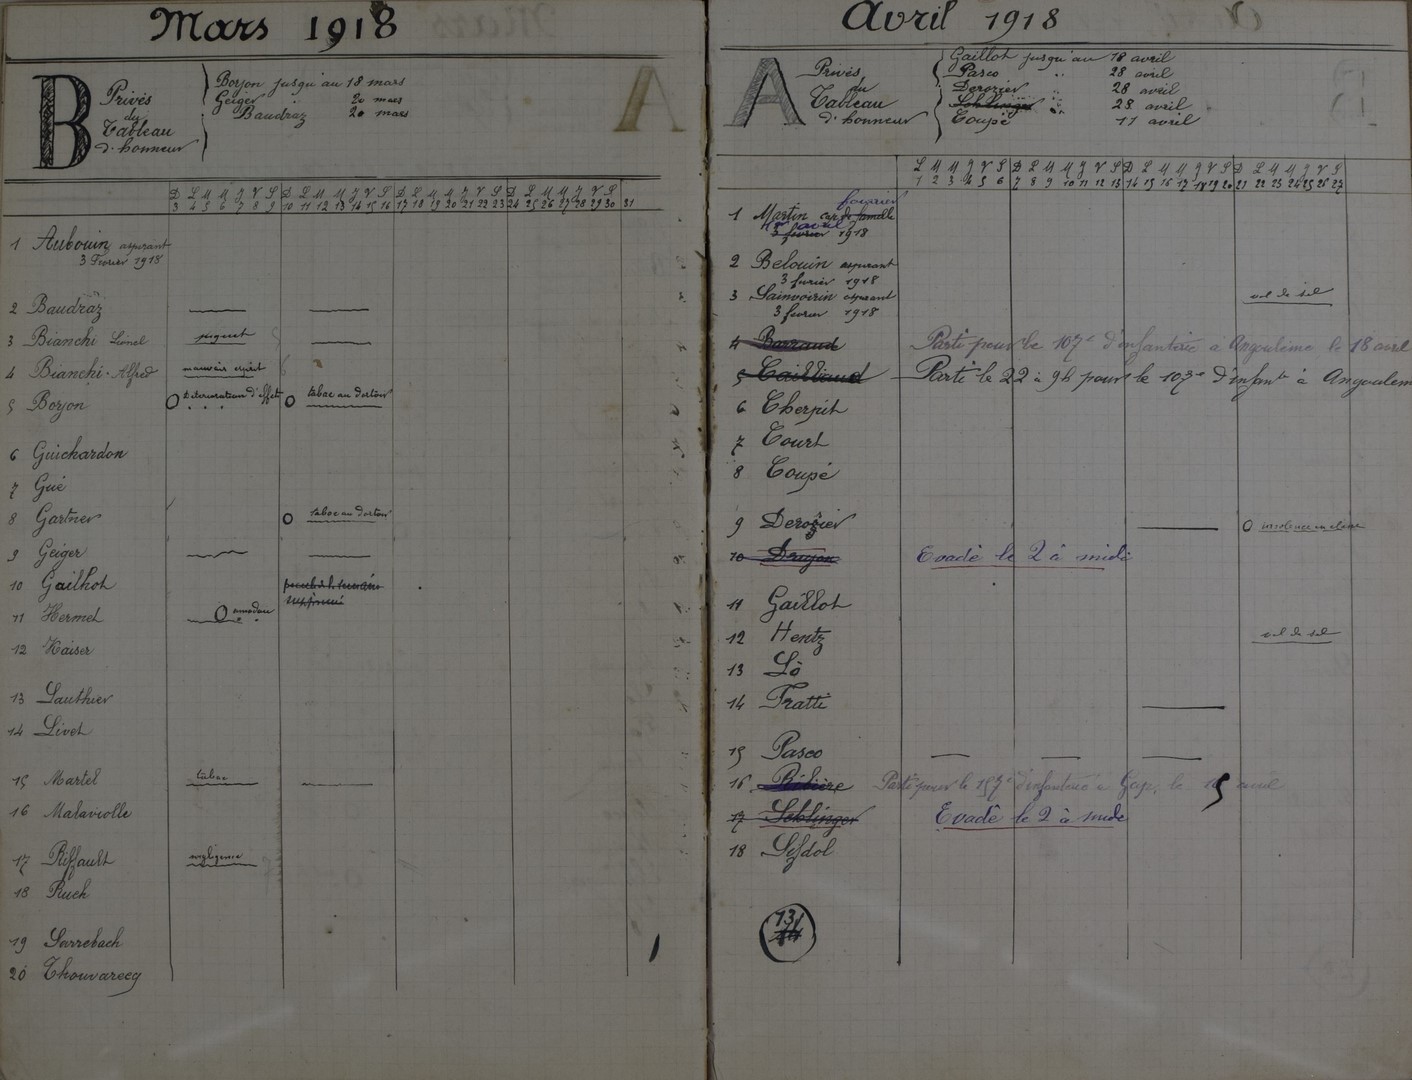 Mars 1918
B
Privés
du
Tableau
d'honneur
Borjon jusqu'au 18 mars
Geiger " 20 mars
Baudraz 20 mars
A
D L M M J V S D L M M J V S D L M M J V S D L M M J V S
3 4 5 6 7 8 9 10 11 12 13 14 15 16 17 18 19 20 21 22 23 24 25 26 27 28 29 30 31
1 Aubouin aspirant
3 Fevrier 1918
2 Baudraz
3 Bianchi Lionel piquet
4 Bianchi Alfred mauvais esprit
5 Borjon O détérioration d'effets O tabac au dortoir
6 Guichardon
7 Gué
8 Gartner O tabac au dortoir
9 Geiger
10 Gailhot
supprimé
11 Hermet O amadou
12 Kaiser
13 Lauthier
14 Livet
15 Martel tabac
16 Malaviolle
17 Riffault négligence
18 Ruch
19 Sarrebach
20 Thouvarecq
Avril 1918
A
Privés
du
Tableau
d'honneur
Gaillot jusqu'au 18 avril
Pasco " 28 avril
Derozier " 28 avril
Seklinger " 28 avril
Coupé 11 avril
L M M J V S D L M M J V S D L M M J V S D L M M J V S
1 2 3 4 5 6 7 8 9 10 11 12 13 14 15 16 17 18 19 20 21 22 23 24 25 26 27
fourrier
1 Martin cap de famille
1er avril
3 fevrier 1918
2 Belouin aspirant
3 fevrier 1918
3 Sainvoirin aspirant vol de sel
3 fevrier 1918
4 Barraud Parti pour le 107e d'infanterie a Angoulême le 18 avril
5 Cailliaud Parti le 22 à 9h pour le 107e d'infante à Angoulem
6 Cherpit
7 Court
8 Coupé
9 Derozier O insolence en classe
10 Drujon Evadé le 2 à midi
11 Gaillot
12 Hentz vol de sel
13 Lô
14 Fratti
15 Pasco
16 Ribière Parti pour le 157e d'infanterie a Gap, le 15 avril
17 Seklinger Evadé le 2 à midi
18 Sefdol
13